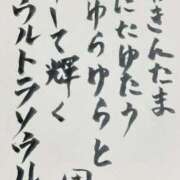 きんたま
にたゆたう
ゆらゆらと
して輝く
ウルトラソウル